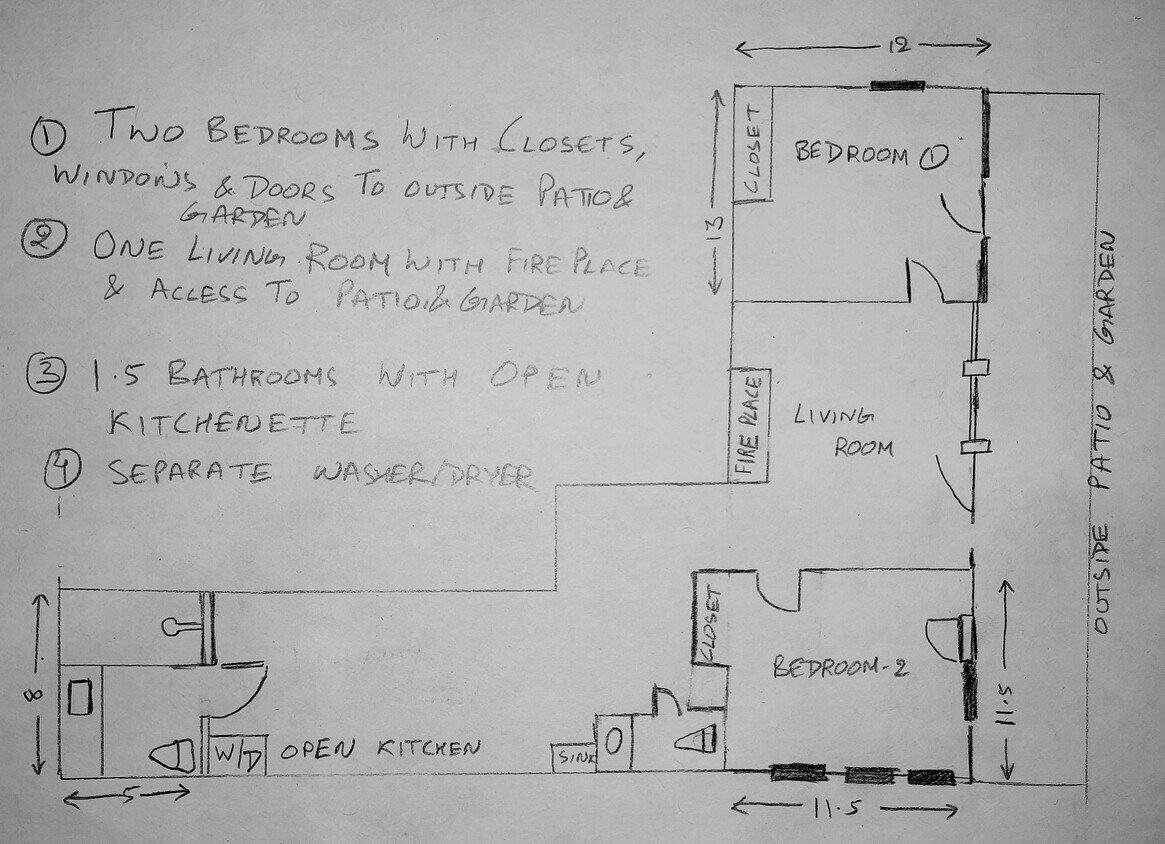 ① TWO BEDROOMS WITH CLOSETS,
WINDOWS & DOORS TO OUTSIDE PATIO &
GARDEN
② ONE LIVING ROOM WITH FIRE PLACE
& ACCESS TO PATIO & GARDEN
③ 1.5 BATHROOMS WITH OPEN
KITCHENETTE
④ SEPARATE WASHER/DRYER
12
CLOSET
BEDROOM ①
13
FIRE PLACE
LIVING
ROOM
OUTSIDE PATIO & GARDEN
CLOSET
BEDROOM-2
11.5
11.5
8
W/D
OPEN KITCHEN
SINK
5